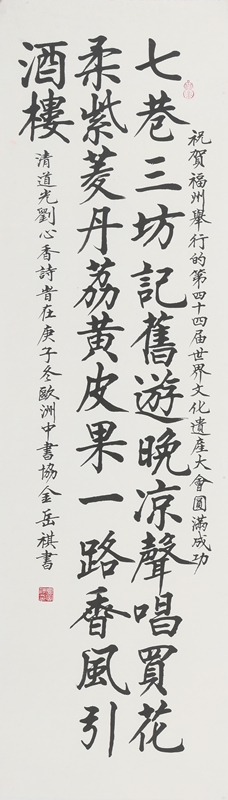 祝贺福州舉行的第四十四届世界文化遺産大會圓滿成功
七巷三坊記舊遊晚凉聲唱買花
柔紫菱丹荔黄皮果一路香風引
酒樓
清道光劉心香詩肯在庚子冬歐洲中書協金岳祺書